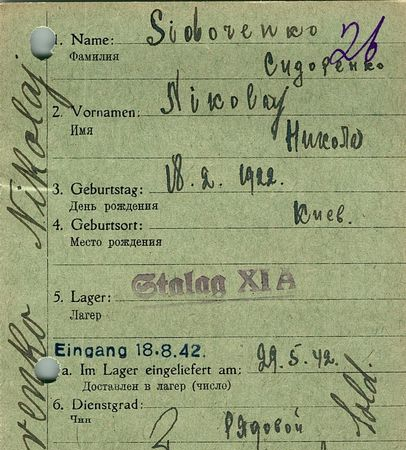 1. Name: Sidorenko
Фамилия Сидоренко
26
2. Vornamen: Nikolaj
Имя Никола
3. Geburtstag: 18. 2. 1922.
День рождения
4. Geburtsort: Киев.
Место рождения
Stalag XI A
5. Lager:
Лагер
Eingang 18.8.42.
a. Im Lager eingeliefert am: 29. 5. 42.
Доставлен в лагер (число)
6. Dienstgrad:
Чин Рядовой
Sold.
2
renko Nikolaj